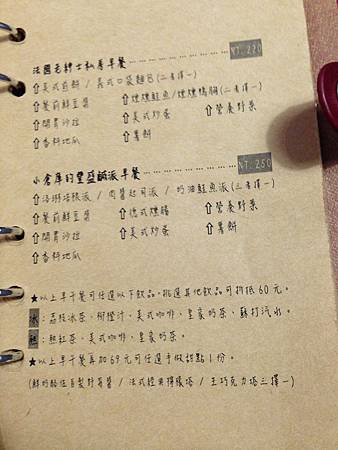 法國老紳士私房早餐 ⋯⋯⋯⋯⋯⋯ NT. 220
⇧美式煎餅 / 義式口袋麵包(二者擇一)
⇧餐前鮮豆漿 ⇧煙燻鮭魚/煙燻鴨胸(二者擇一)
⇧開胃沙拉 ⇧美式炒蛋 ⇧營養野菜
⇧香料地瓜 ⇧薯餅
小倉庫的豐盛鹹派早餐 ⋯⋯⋯⋯⋯⋯ NT. 250
⇧洛琳培根派 / 肉醬起司派 / 奶油鮭魚派(三者擇一)
⇧餐前鮮豆漿 ⇧德式燻腸 ⇧營養野菜
⇧開胃沙拉 ⇧美式炒蛋 ⇧薯餅
⇧香料地瓜
★以上早午餐可任選以下飲品,挑選其他飲品可折抵60元。
冰:荔枝冰茶、柳橙汁、美式咖啡、皇家奶茶、蘇打汽水。
熱:熱紅茶、美式咖啡、皇家奶茶。
★以上早午餐再加69元可任選手做甜點1份。
(鮮奶酪佐自製野莓醬 / 法式經典檸檬塔 / 生巧克力塔三擇一)